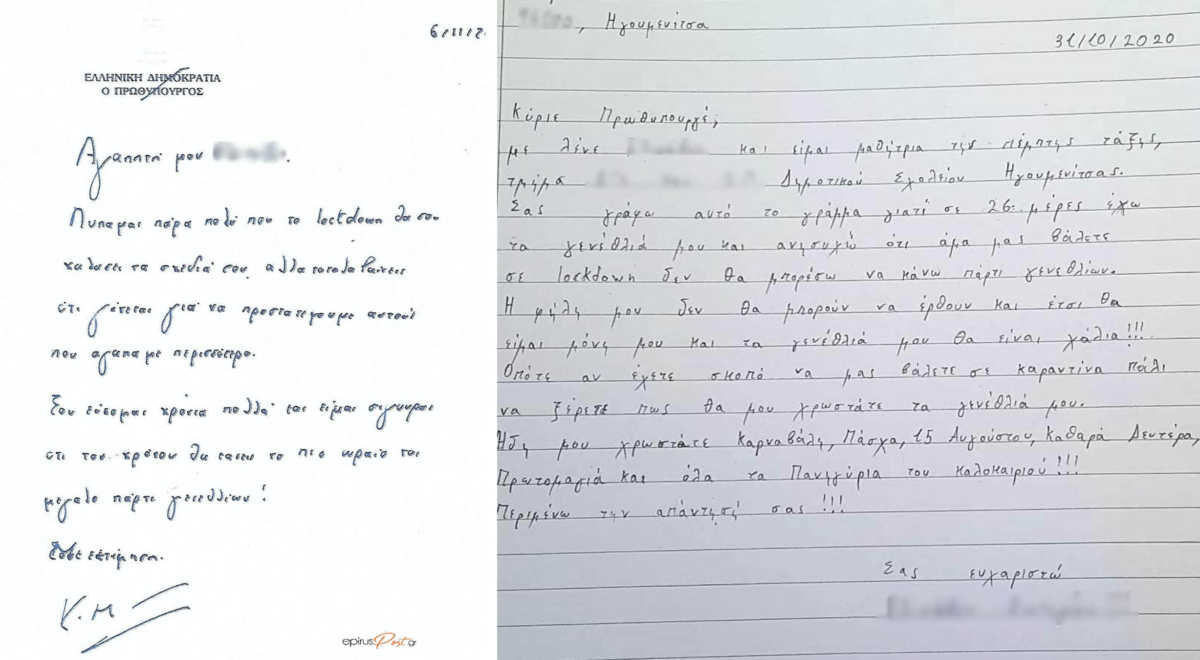 6/11/2
ΕΛΛΗΝΙΚΗ ΔΗΜΟΚΡΑΤΙΑ
Ο ΠΡΩΘΥΠΟΥΡΓΟΣ
Αγαπητή μου .
Λυπαμαι πάρα πολύ που το lockdown θα σου
χαλασει τα σχεδιά σου, αλλα καταλαβαινεις
ότι γίνεται για να προστατεψουμε αυτούς
που αγαπαμε περισσότερο.
Σου εύχομαι χρόνια πολλά και ειμαι σιγουρος
οτι του χρόνου θα κανεις το πιο ωραίο και
μεγαλο πάρτι γενεθλιων!
εκτιμηση.
Κ.Μ
epirusPost.gr
, Ηγουμενίτσα
31/10/2020
Κύριε Πρωθυπουργέ,
με λένε και είμαι μαθήτρια της πέμπτης τάξης,
τμήμα Δημοτικού Σχολείου Ηγουμενίτσας.
Σας γράφω αυτό το γράμμα γιατί σε 26 μέρες έχω
τα γενέθλιά μου και ανησυχώ ότι άμα μας βάλετε
σε lockdown δεν θα μπορέσω να κάνω πάρτι γενεθλίων.
Η φίλη μου δεν θα μπορούν να έρθουν και έτσι θα
είμαι μόνη μου και τα γενέθλιά μου θα είναι χάλια!!!
Οπότε αν έχετε σκοπό να μας βάλετε σε καραντίνα πάλι
να ξέρετε πως θα μου χρωστάτε τα γενέθλιά μου.
Ήδη μου χρωστάτε Καρναβάλη, Πάσχα, 15 Αυγούστου, Καθαρά Δευτέρα,
Πρωτομαγιά και όλα τα Πανηγύρια του καλοκαιριού!!!
Περιμένω την απάντησή σας!!!
Σας ευχαριστώ